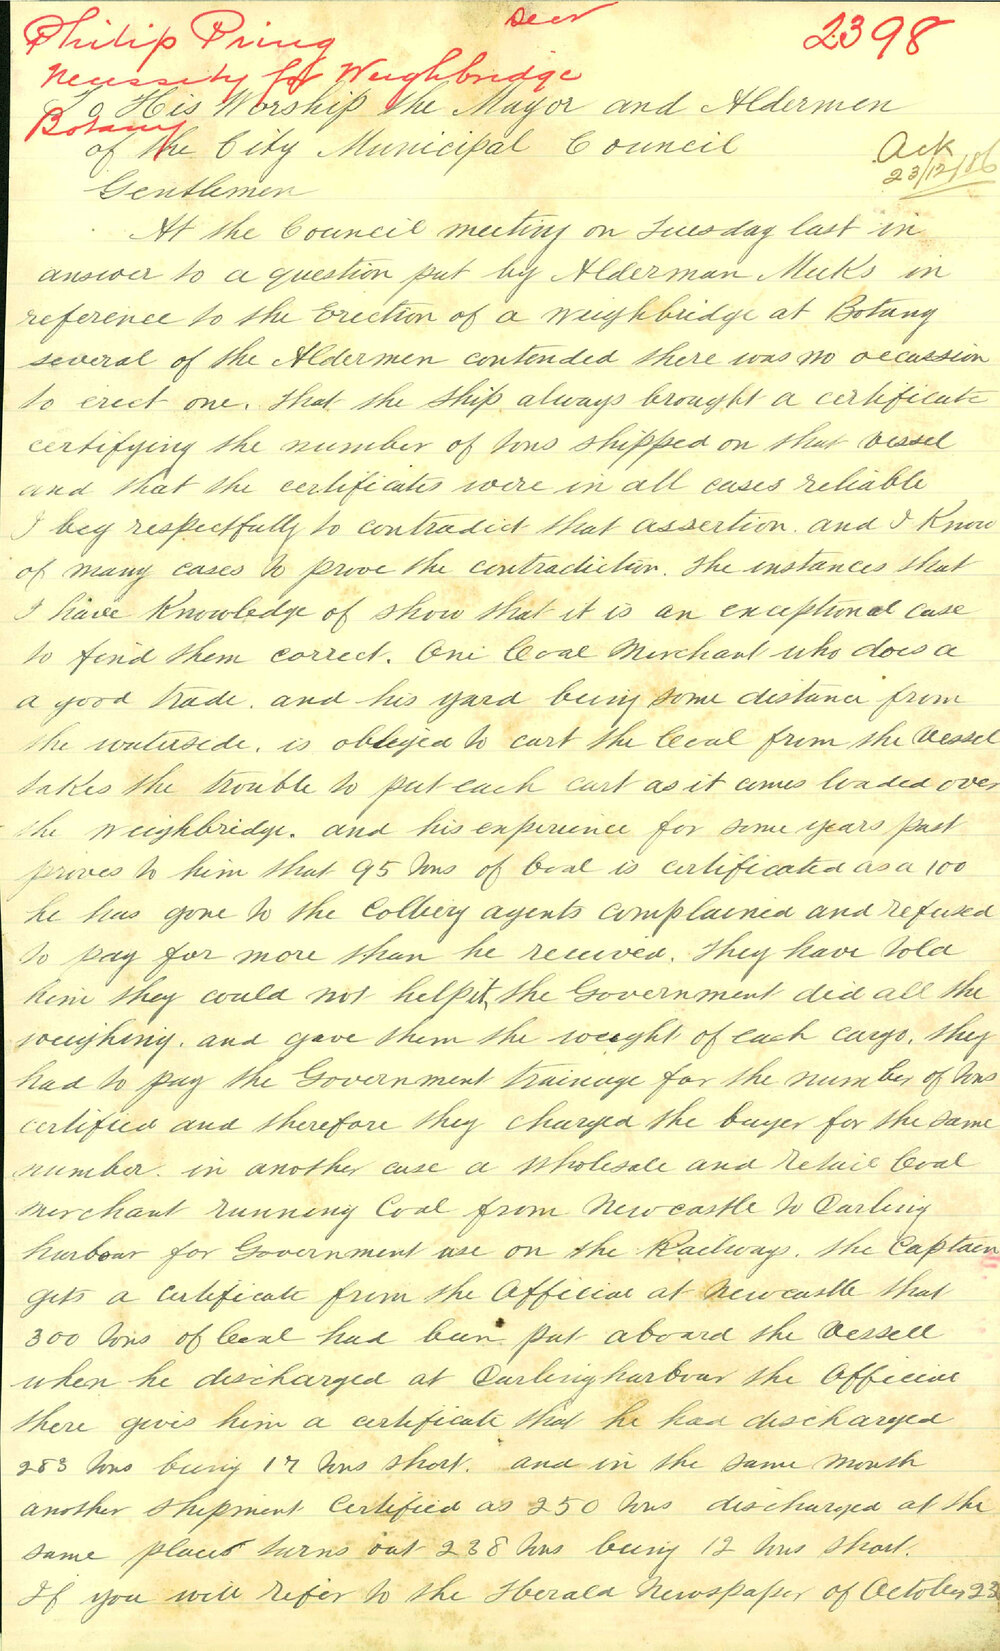 Philip Pring
2398
Necessity for Weighbridge
Botany
To His Worship the Mayor and Aldermen
of the City Municipal Council
Ack
23/12/86
Gentlemen
At the Council meeting on Tuesday last in
answer to a question put by Alderman Meeks in
reference to the Erection of a weighbridge at Botany
several of the Aldermen contended there was no occassion
to erect one. that the ship always brought a certificate
certifying the number of tons shipped on that vessel
and that the certificates were in all cases reliable
I beg respectfully to contradict that assertion. and I Know
of many cases to prove the contradiction. The instances that
I have Knowledge of show that it is an exceptional case
to find them correct. One Coal Merchant who does a
a good trade. and his yard being some distance from
the waterside. is obleiged to cart the Coal from the Vessel
takes the trouble to put each cart as it comes loaded over
the weighbridge. and his experience for some years past
proves to him that 95 tons of Coal is certificated as a 100
he has gone to the Colliery agents complained and refused
to pay for more than he received. They have told
him they could not help it, the Government did all the
weighing. and gave them the weight of each cargo. they
had to pay the Government trainage for the number of tons
certified and therefore they charged the buyer for the same
number. in another case a wholesale and retail Coal
merchant running Coal from Newcastle to Darling
harbour for Government use on the Railways. the Captain
gets a certificate from the Official at Newcastle that
300 tons of Coal had been put aboard the Vessell
when he discharged at Darlingharbour the Official
there gives him a certificate that he had discharged
283 tons being 17 tons short. and in the same month
another shipment Certified as 250 tons discharged at the
same place turns out 238 tons being 12 tons short.
If you will refer to the Herald Newspaper of October 23